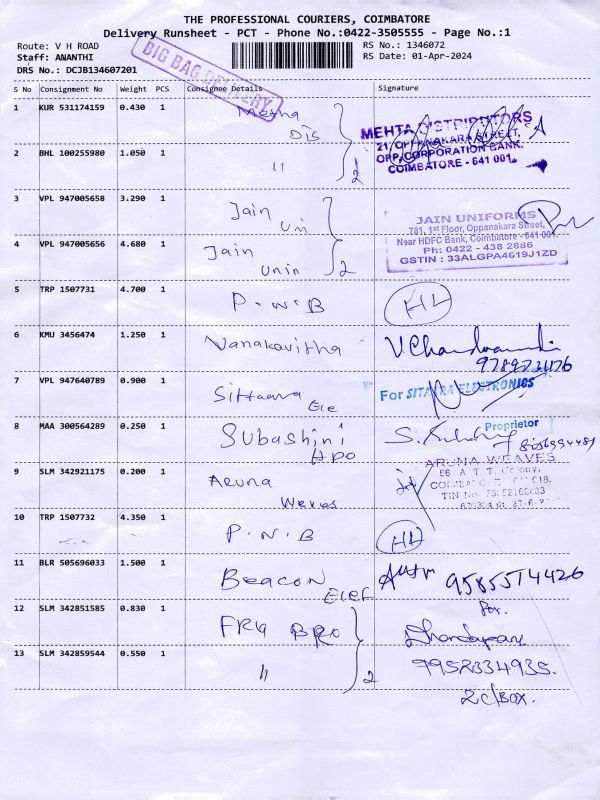 THE PROFESSIONAL COURIERS, COIMBATORE
Delivery Runsheet - PCT - Phone No.:0422-3505555 - Page No.:1
Route: V H ROAD
RS No.: 1346072
Staff: ANANTHI
RS Date: 01-Apr-2024
DRS No.: DCJB134607201
BIG BAG DELIVERY
S No Consignment No Weight PCS Consignee Details Signature
1 KUR 531174159 0.430 1 Metha
Dis
MEHTA DISTRIBUTORS
21, OPPANAKARA STREET,
OPP. CORPORATION BANK,
COIMBATORE - 641 001.
2 BHL 100255980 1.050 1 "
2
3 VPL 947005658 3.290 1 Jain
Uni
JAIN UNIFORMS
781, 1st Floor, Oppanakara Street,
Near HDFC Bank, Coimbatore - 641 001.
Ph: 0422 - 438 2886
GSTIN : 33ALGPA4619J1ZD
4 VPL 947005656 4.680 1 Jain
Unin
2
5 TRP 1507731 4.700 1 P.N.B
6 KMU 3456474 1.250 1 Vanakavitha
7 VPL 947640789 0.900 1 Sittaara
Ele
For SITAARA ELECTRONICS
Proprietor
8 MAA 300564289 0.250 1 Subashini
HPO
9 SLM 342921175 0.200 1 Aruna
Weves
ARUNA WEAVES
10 TRP 1507732 4.350 1 P.N.B
11 BLR 505696033 1.500 1 Beacon
Elec
9585514426
for.
12 SLM 342851585 0.830 1 FRG BRO
Dhandapani
13 SLM 342859544 0.550 1 "
2
9952334935.
2C/Box.